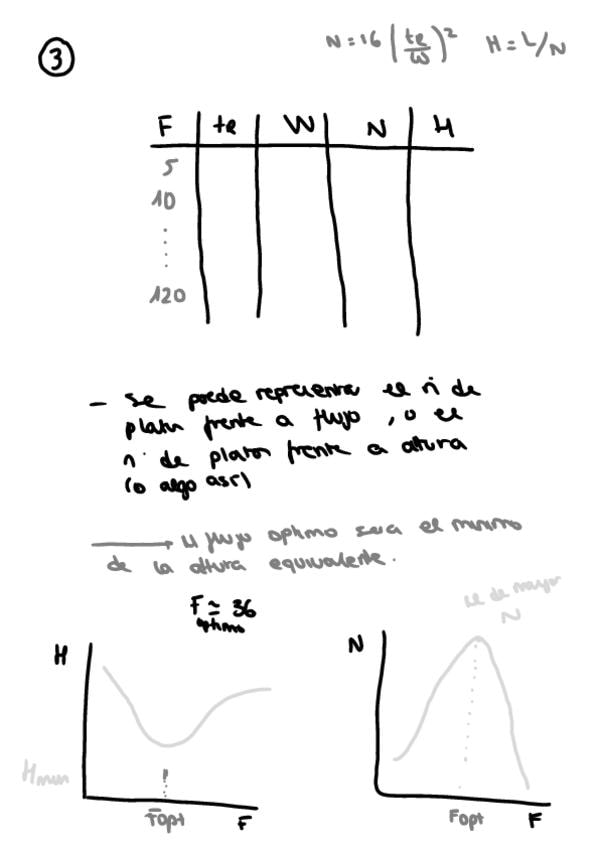 N = 16 (te/W)² H = L/N
3
F te W N H
5
10
120
- se puede representar el nº de
platos frente a flujo, o el
nº de platos frente a altura
(o algo así)
→ El flujo optimo sera el minimo
de la altura equivalente.
F ≃ 36
optimo
el de mayor
N
H
N
Hmin
Fopt F
Fopt F